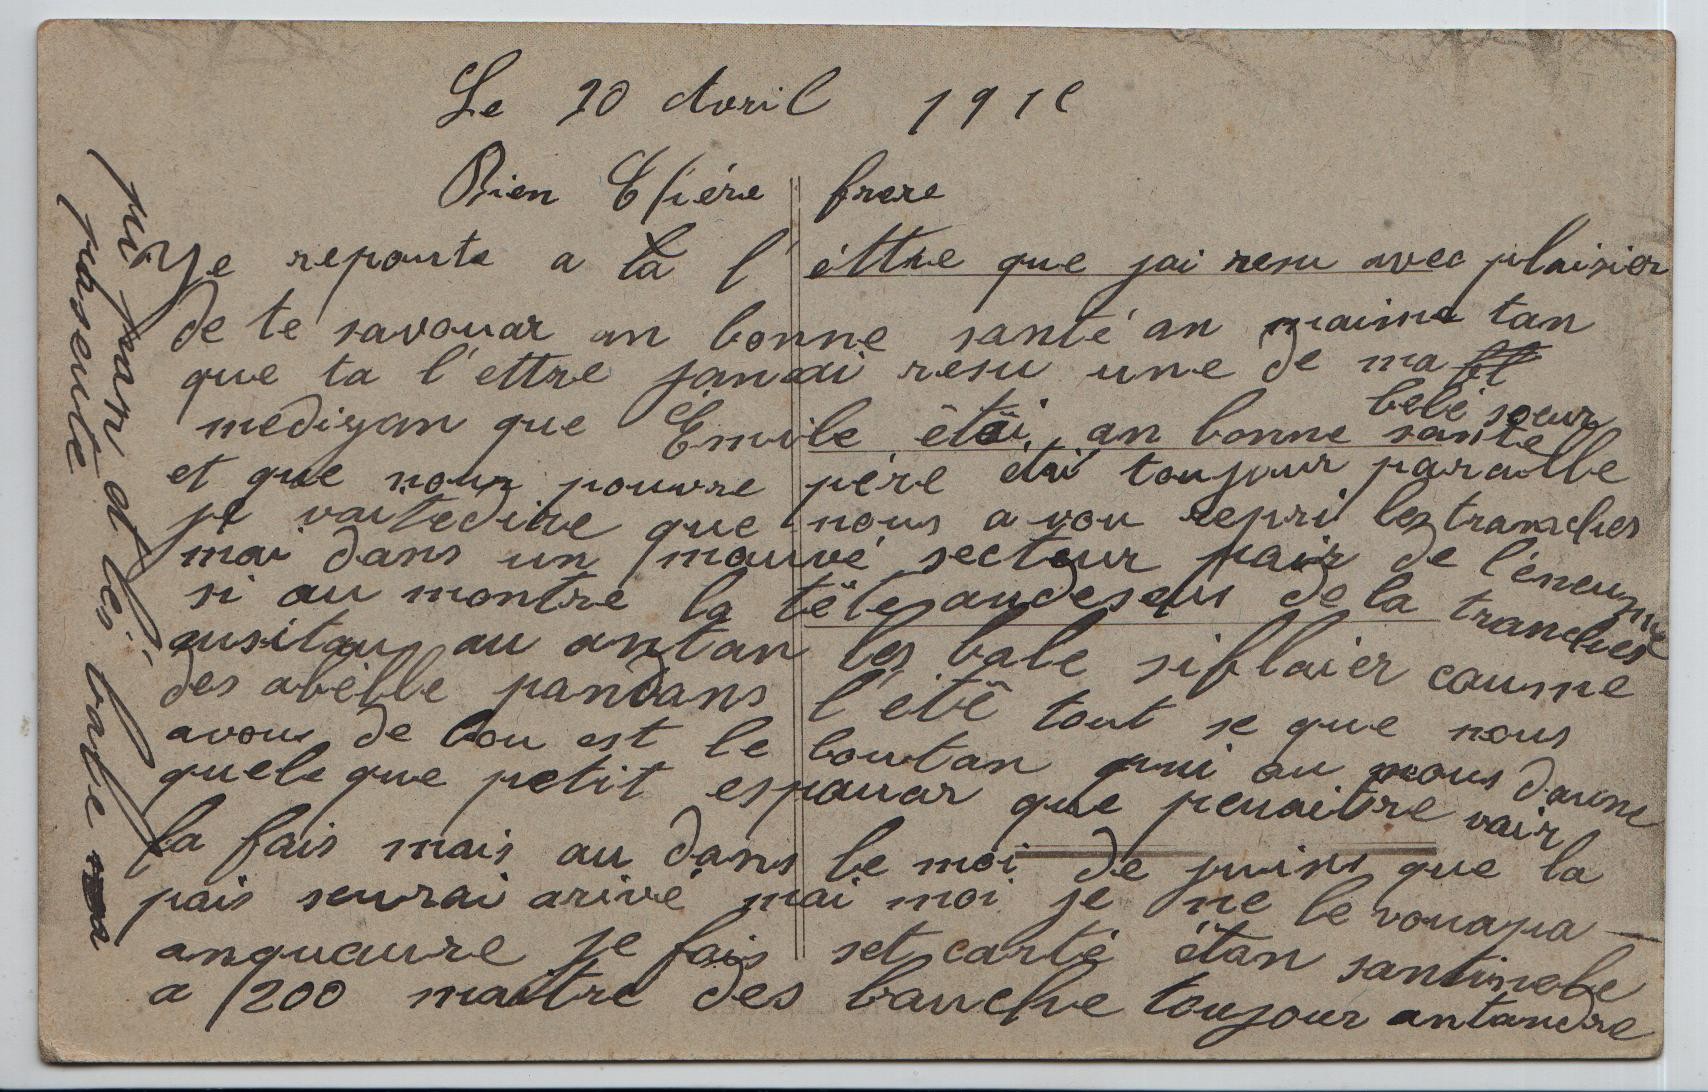 Le 20 Avril 191
Bien Chére frere
Je reponte a ta l'éttre que jai resu avec plaisier
de te savouar an bonne santé an maime tan
que ta l'ettre janai resu une de ma
bele soeur
medizan que Emile étai an bonne santé
et que nour pouvre pére étai toujour paraille
je vaitedire que nous avou repri les tranches
mai dans un mouvé secteur pair de l'éneume
si au montre la tête audeseus de la tranches
ausitau au antan les bale siflaier caume
des abeille pandans l'été tout se que nous
avous de bou est le boutan qui au nous daune
quele que petit espauar que peuaitre vair
la fais mais au dans le moi de juins que la
pais seurai arivé mai moi je ne le vouapa
anquaure je fais set carté étan santinele
a 200 maitre des bauche toujour antandre
pui par et les bale